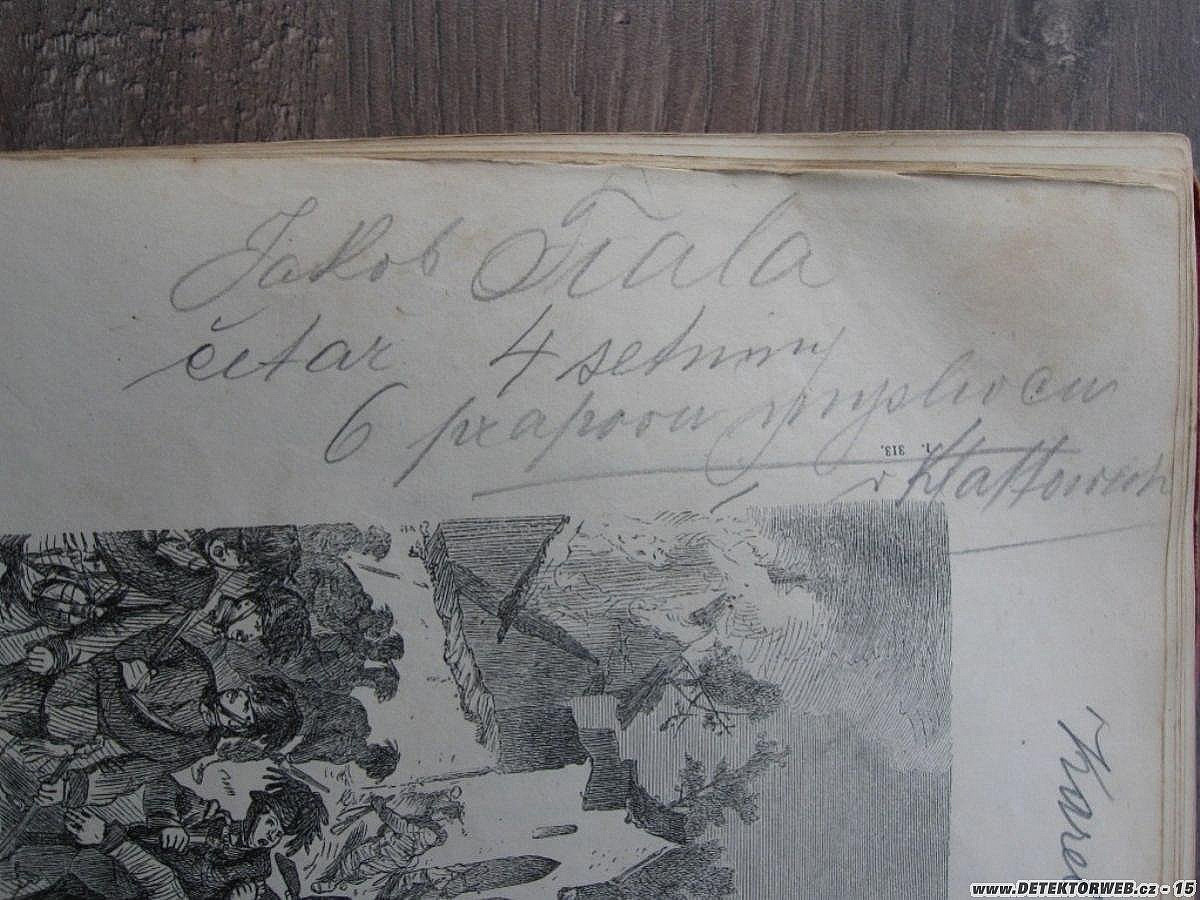 Jakob Fiala
četař 4 setniny
6 praporu myslivců
v Klattovech
1. 313.
Karel
www.DETEKTORWEB.cz - 15